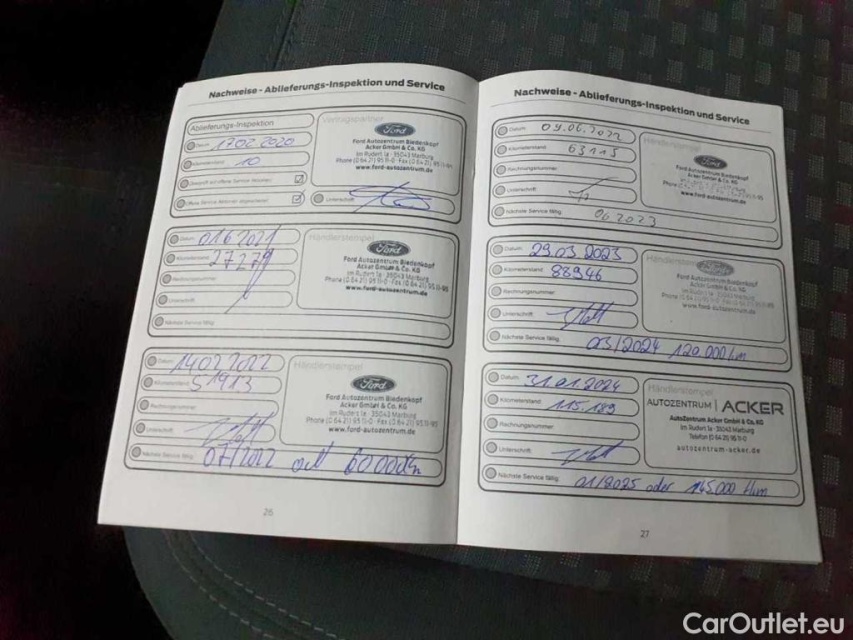 Nachweise - Ablieferungs-Inspektion und Service
Ablieferungs-Inspektion
Datum 17 02 2020
Kilometerstand 10
Unterschrift
Vertragspartner
Ford
Ford Autozentrum Biedenkopf
Acker GmbH & Co. KG
Im Rudert 1a · 35043 Marburg
Phone (0 64 21) 95 11-0 · Fax (0 64 21) 95 11-90
www.ford-autozentrum.de
Datum 01 6 2021
Kilometerstand 27279
Rechnungsnummer
Unterschrift
Nächste Service fällig
Händlerstempel
Ford
Ford Autozentrum Biedenkopf
Acker GmbH & Co. KG
Im Rudert 1a · 35043 Marburg
www.ford-autozentrum.de
Datum 14 02 2022
Kilometerstand 51913
Rechnungsnummer
Unterschrift
Nächste Service fällig 07/2022 60 000 km
Händlerstempel
Ford
Ford Autozentrum Biedenkopf
Acker GmbH & Co. KG
Im Rudert 1a · 35043 Marburg
www.ford-autozentrum.de
26
Nachweise - Ablieferungs-Inspektion und Service
Datum 09.06.2022
Kilometerstand 63115
Rechnungsnummer
Unterschrift
Nächste Service fällig 06 2023
Händlerstempel
Ford
Ford Autozentrum Biedenkopf
Acker GmbH & Co. KG
www.ford-autozentrum.de
Datum 29.03 2023
Kilometerstand 88946
Rechnungsnummer
Unterschrift
Nächste Service fällig 03/2024 120.000 km
Händlerstempel
Ford Autozentrum Biedenkopf
Acker GmbH & Co. KG
Im Rudert 1a · 35043 Marburg
www.ford-autozentrum.de
Datum 31.01.2024
Kilometerstand 115.189
Rechnungsnummer
Unterschrift
Nächste Service fällig 01/2025 oder 145.000 km
Händlerstempel
AUTOZENTRUM | ACKER
AutoZentrum Acker GmbH
Im Rudert 1a · 35043 Marburg
Telefon (0 64 21) 95 11-0
autozentrum-acker.de
27
CarOutlet.eu